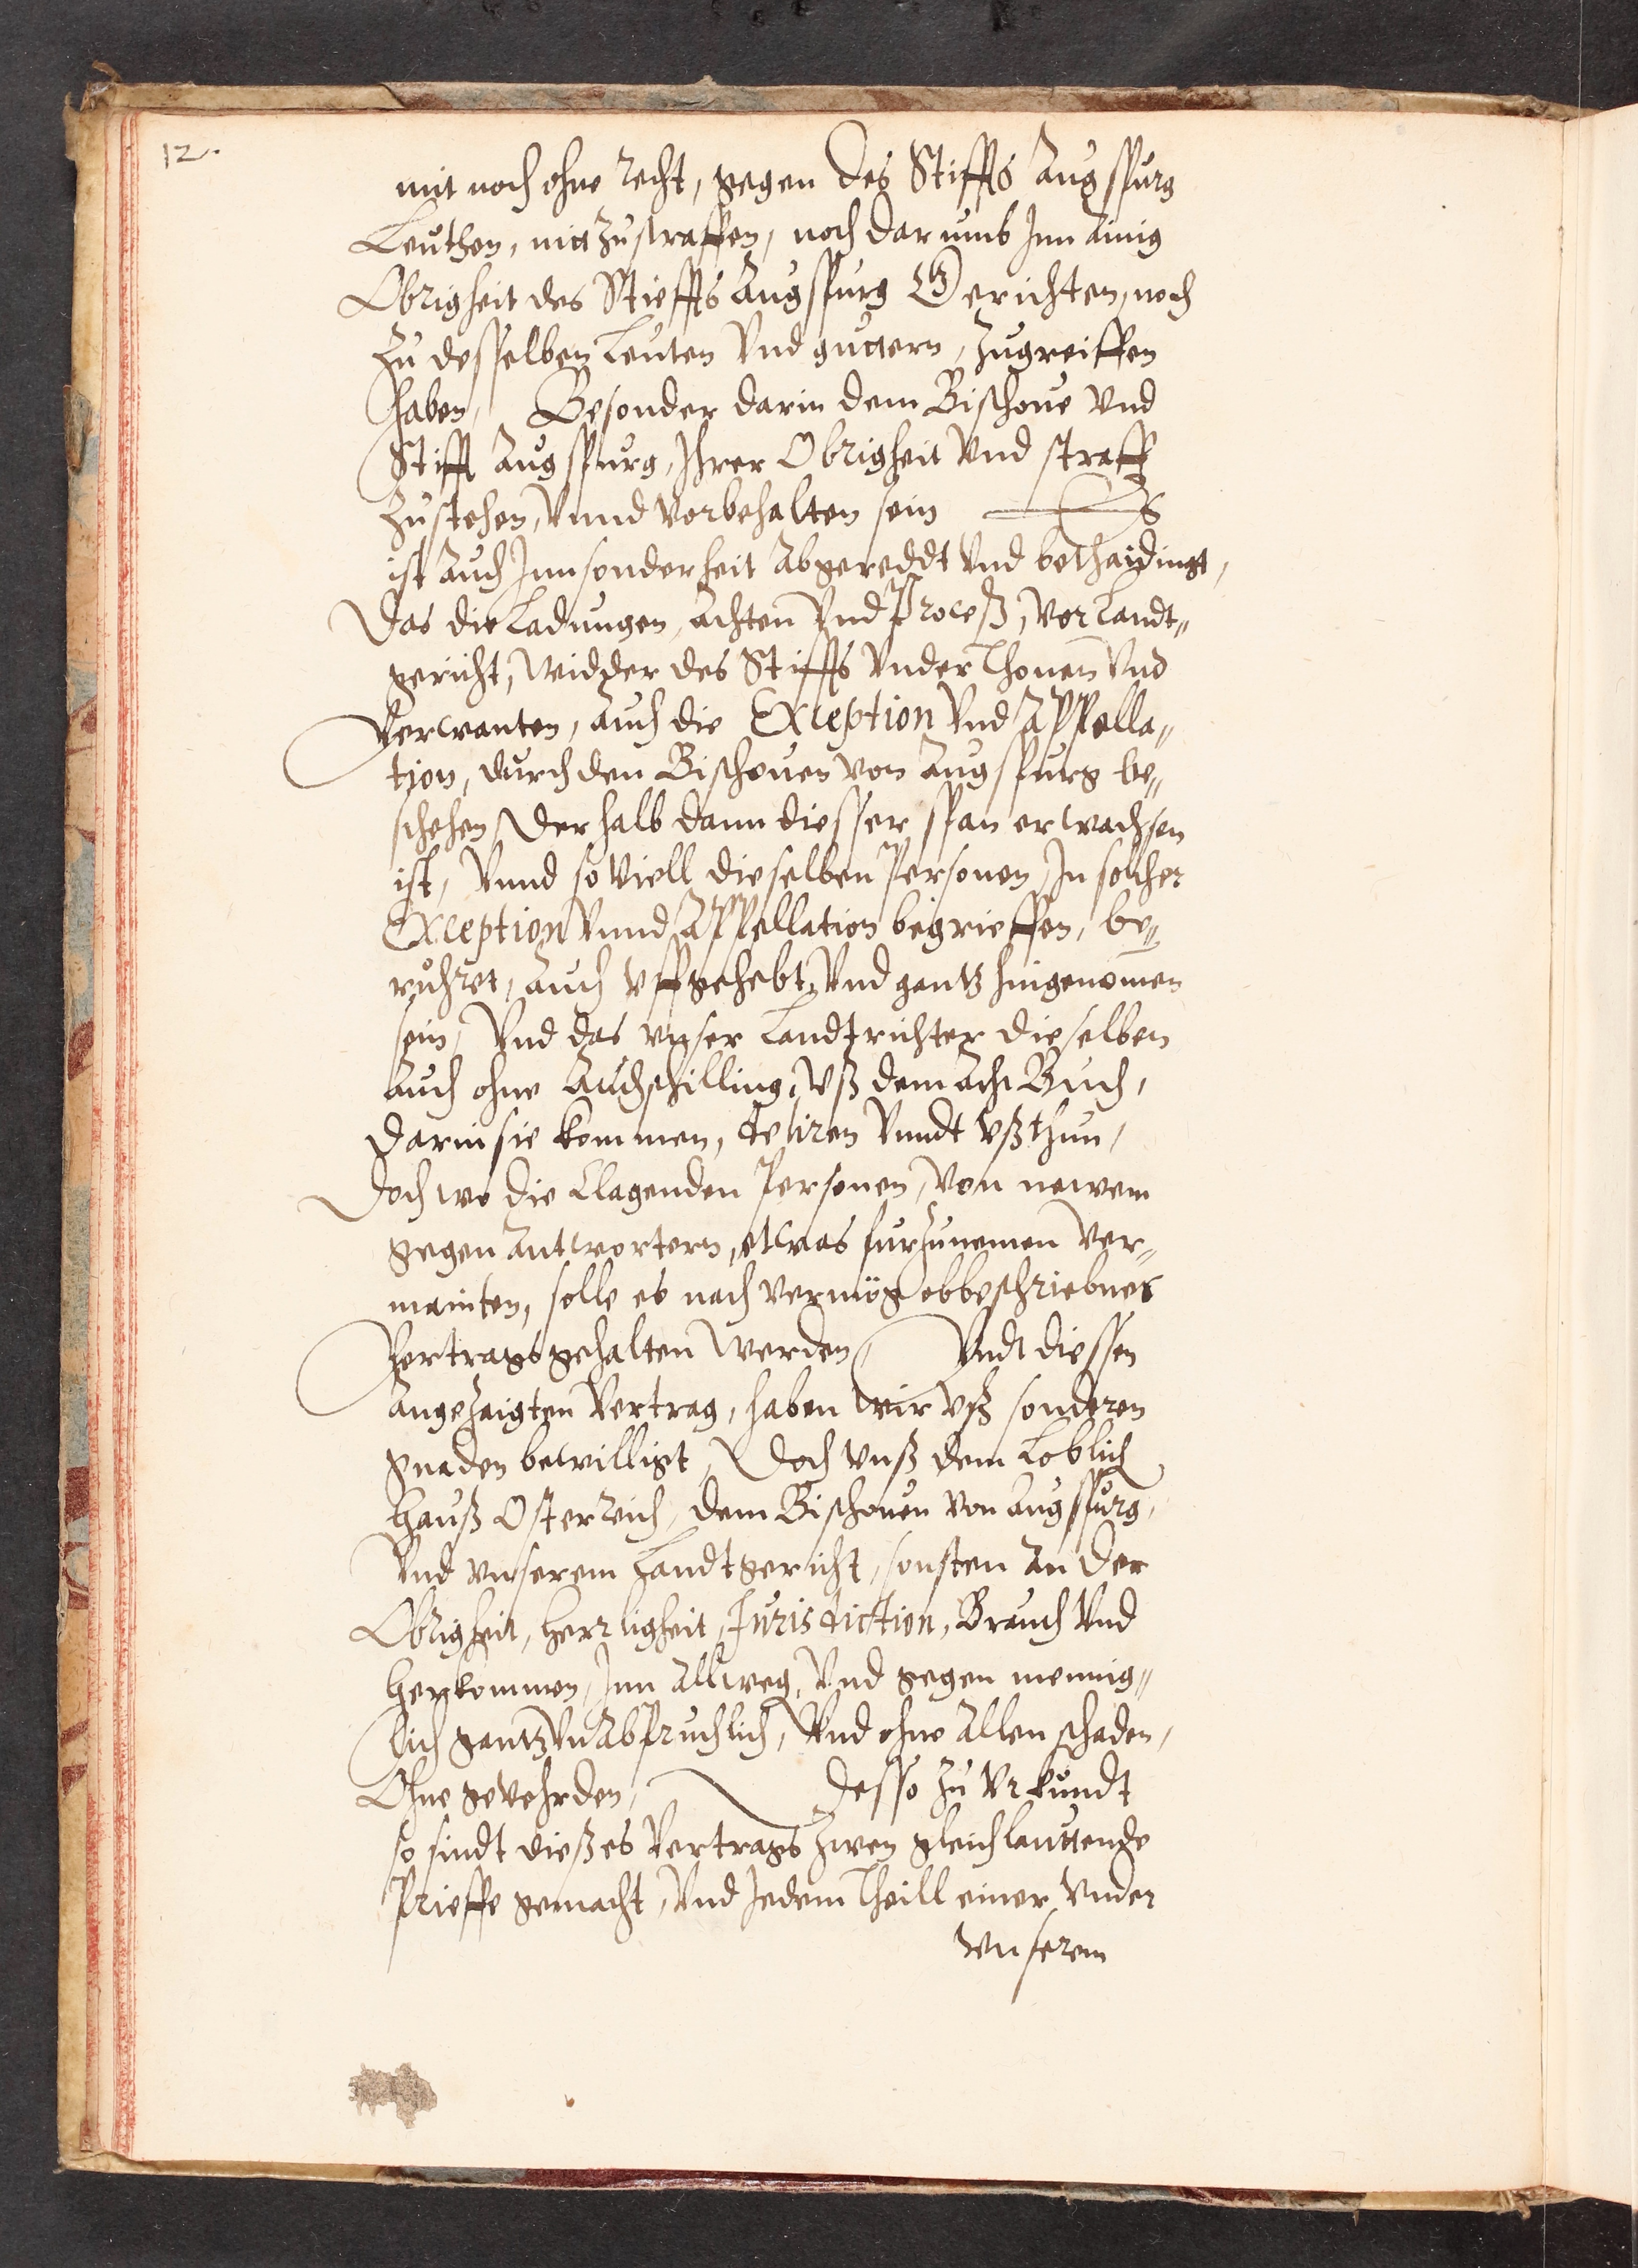 12.
mit noch ohne recht, gegen des Stiffts Augspurg
Leuthen, nit zustraffen, noch darumb Inn ainig
Obrigkeit des Stieffts Augspurg Gerichten, noch
zu desselben Leuten Vnd guttern, zugreiffen
haben, Besonder darin dem Bischoue Vnd
Stifft Augspurg, Ihrer Obrigkeit Vnd straff
zustehen, Vnnd Vorbehalten sein Es
ist auch Innsonderheit Abgereddt Vnd bethaidingt,
Das die Ladungen, Achten Vnd Proceß, Vor Landt„
gericht, Widder des Stiffts Vnderthonen Vnd
Verwanten, auch die Exception Vnd Appella„
tion, durch den Bischouen von Augspurg be„
schehen Derhalb dann diesser span erwachsen
ist, Vnnd so Viell dieselben Personen, In solcher
Exception Vnnd Appellation begrieffen, be„
ruhret, auch Vffgehebt, Vnd gantz hingenomen
sein, Vnd das Vnser Landtrichter dieselben
auch ohne Achschilling, Vß dem Acht Buch,
darin sie kommen, deliren Vnndt Vßthun,
Doch wo die Clagenden Personen, Von newem
gegen Antwortern, etwas furzunemen Ver„
mainten, solle es nach Vermög obbeschriebnes
Vertrags gehalten Werden Vndt diessen
angezaigten Vertrag, haben Wir Vß sonderen
gnaden bewilligt, Doch Vnß dem Loblich
Hauß Osterreich, dem Bischouen Von Augspurg,
Vnd Vnserem Landtgericht, sonsten An der
Obrigkeit, Herrligkeit, Jurisdiction, Brauch Vnd
Herkommen, Inn Allweg, Vnd gegen mennig„
lich gantz VnAbpruchlich, Vnd ohne Allen schaden,
Ohne geVehrden, Desso zu Vrkundt
so sindt dießes Vertrags zwen gleichlauttende
Prieffe gemacht, Vnd Jedem Theill einer Vnder
Vnserem